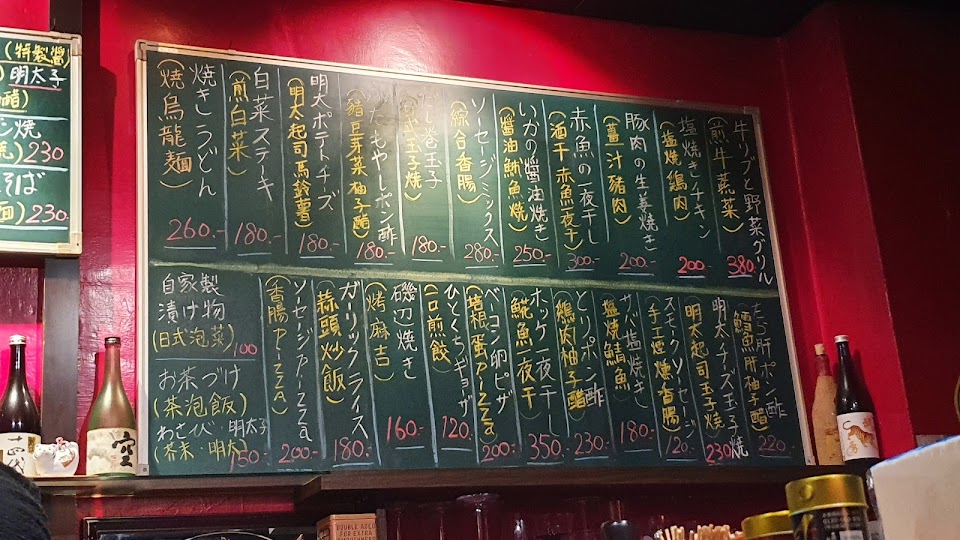 牛リブと野菜グリル
(煎牛蔬菜)
380.-
塩焼きチキン
(塩燒鶏肉)
200.-
豚肉の生姜焼き
(薑汁豬肉)
200.-
赤魚の一夜干し
(酒干 赤魚一夜干)
300.-
いかの醤油焼き
(醬油魷魚燒)
250.-
ソーセージミックス
(綜合香腸)
280.-
だし巻玉子
(日式玉子燒)
180.-
もやしポン酢
(豬豆芽菜柚子醋)
180.-
明太ポテトチーズ
(明太起司馬鈴薯)
180.-
白菜ステーキ
(煎白菜)
180.-
焼きうどん
(燒烏龍麵)
260.-
たら肝ポン酢
(鱈魚肝柚子醋)
220.-
明太チーズ玉子焼
(明太起司玉子燒)
230.-
スモークソーセージ
(手工煙燻香腸)
120.-
サバ塩焼き
(塩燒鯖魚)
180.-
とりポン酢
(鶏肉柚子醋)
230.-
ホッケ一夜干し
(花魚一夜干)
350.-
ベーコン卵ピザ
(培根蛋PIZZA)
200.-
ひとくちギョーザ
(一口煎餃)
120.-
磯辺焼き
(烤麻吉)
160.-
ガーリックライス
(蒜頭炒飯)
180.-
ソーセージPIZZA
(香腸PIZZA)
200.-
自家製
漬け物
(日式泡菜)
100
お茶づけ
(茶泡飯)
わさび・明太子
(芥末・明太)
150.-
(特製醬)
明太子
醋)
焼
230
そば
麵)230.-
DOUBLE ACTED
FOR EXTRA